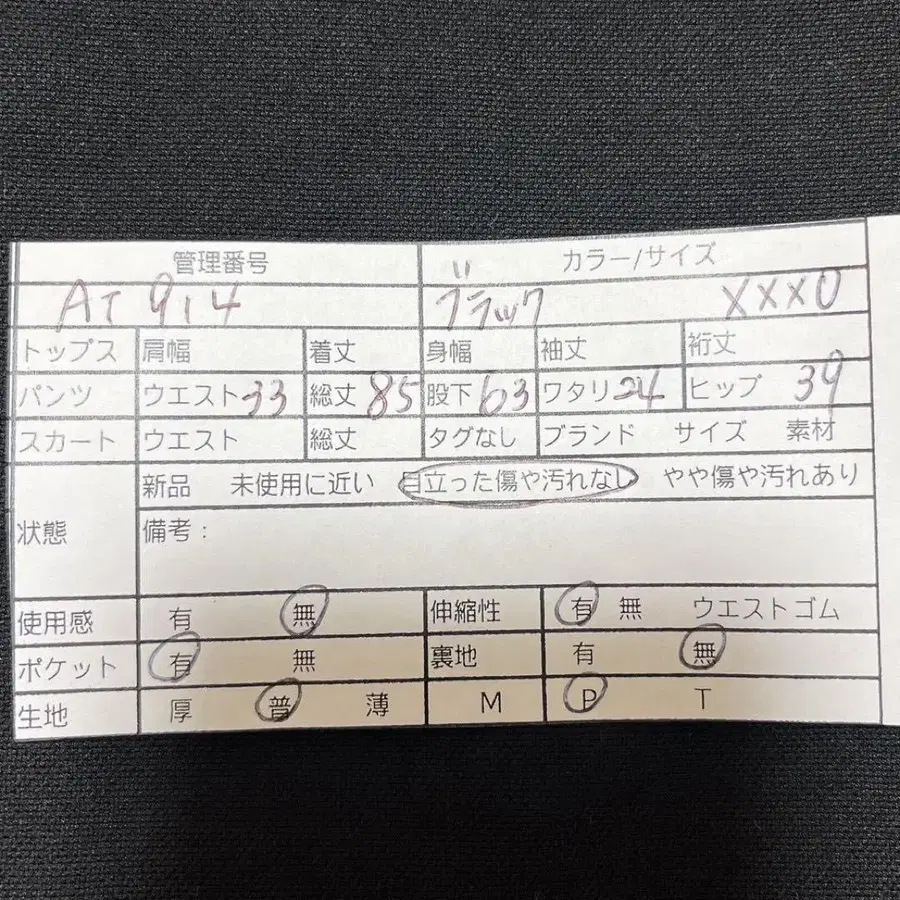 管理番号 カラー/サイズ
AT914 ブラック XXX0
トップス 肩幅 着丈 身幅 袖丈 裄丈
パンツ ウエスト33 総丈85 股下63 ワタリ24 ヒップ 39
スカート ウエスト 総丈 タグなし ブランド サイズ 素材
状態 新品 未使用に近い 目立った傷や汚れなし やや傷や汚れあり
備考:
使用感 有 無 伸縮性 有 無 ウエストゴム
ポケット 有 無 裏地 有 無
生地 厚 普 薄 M P T